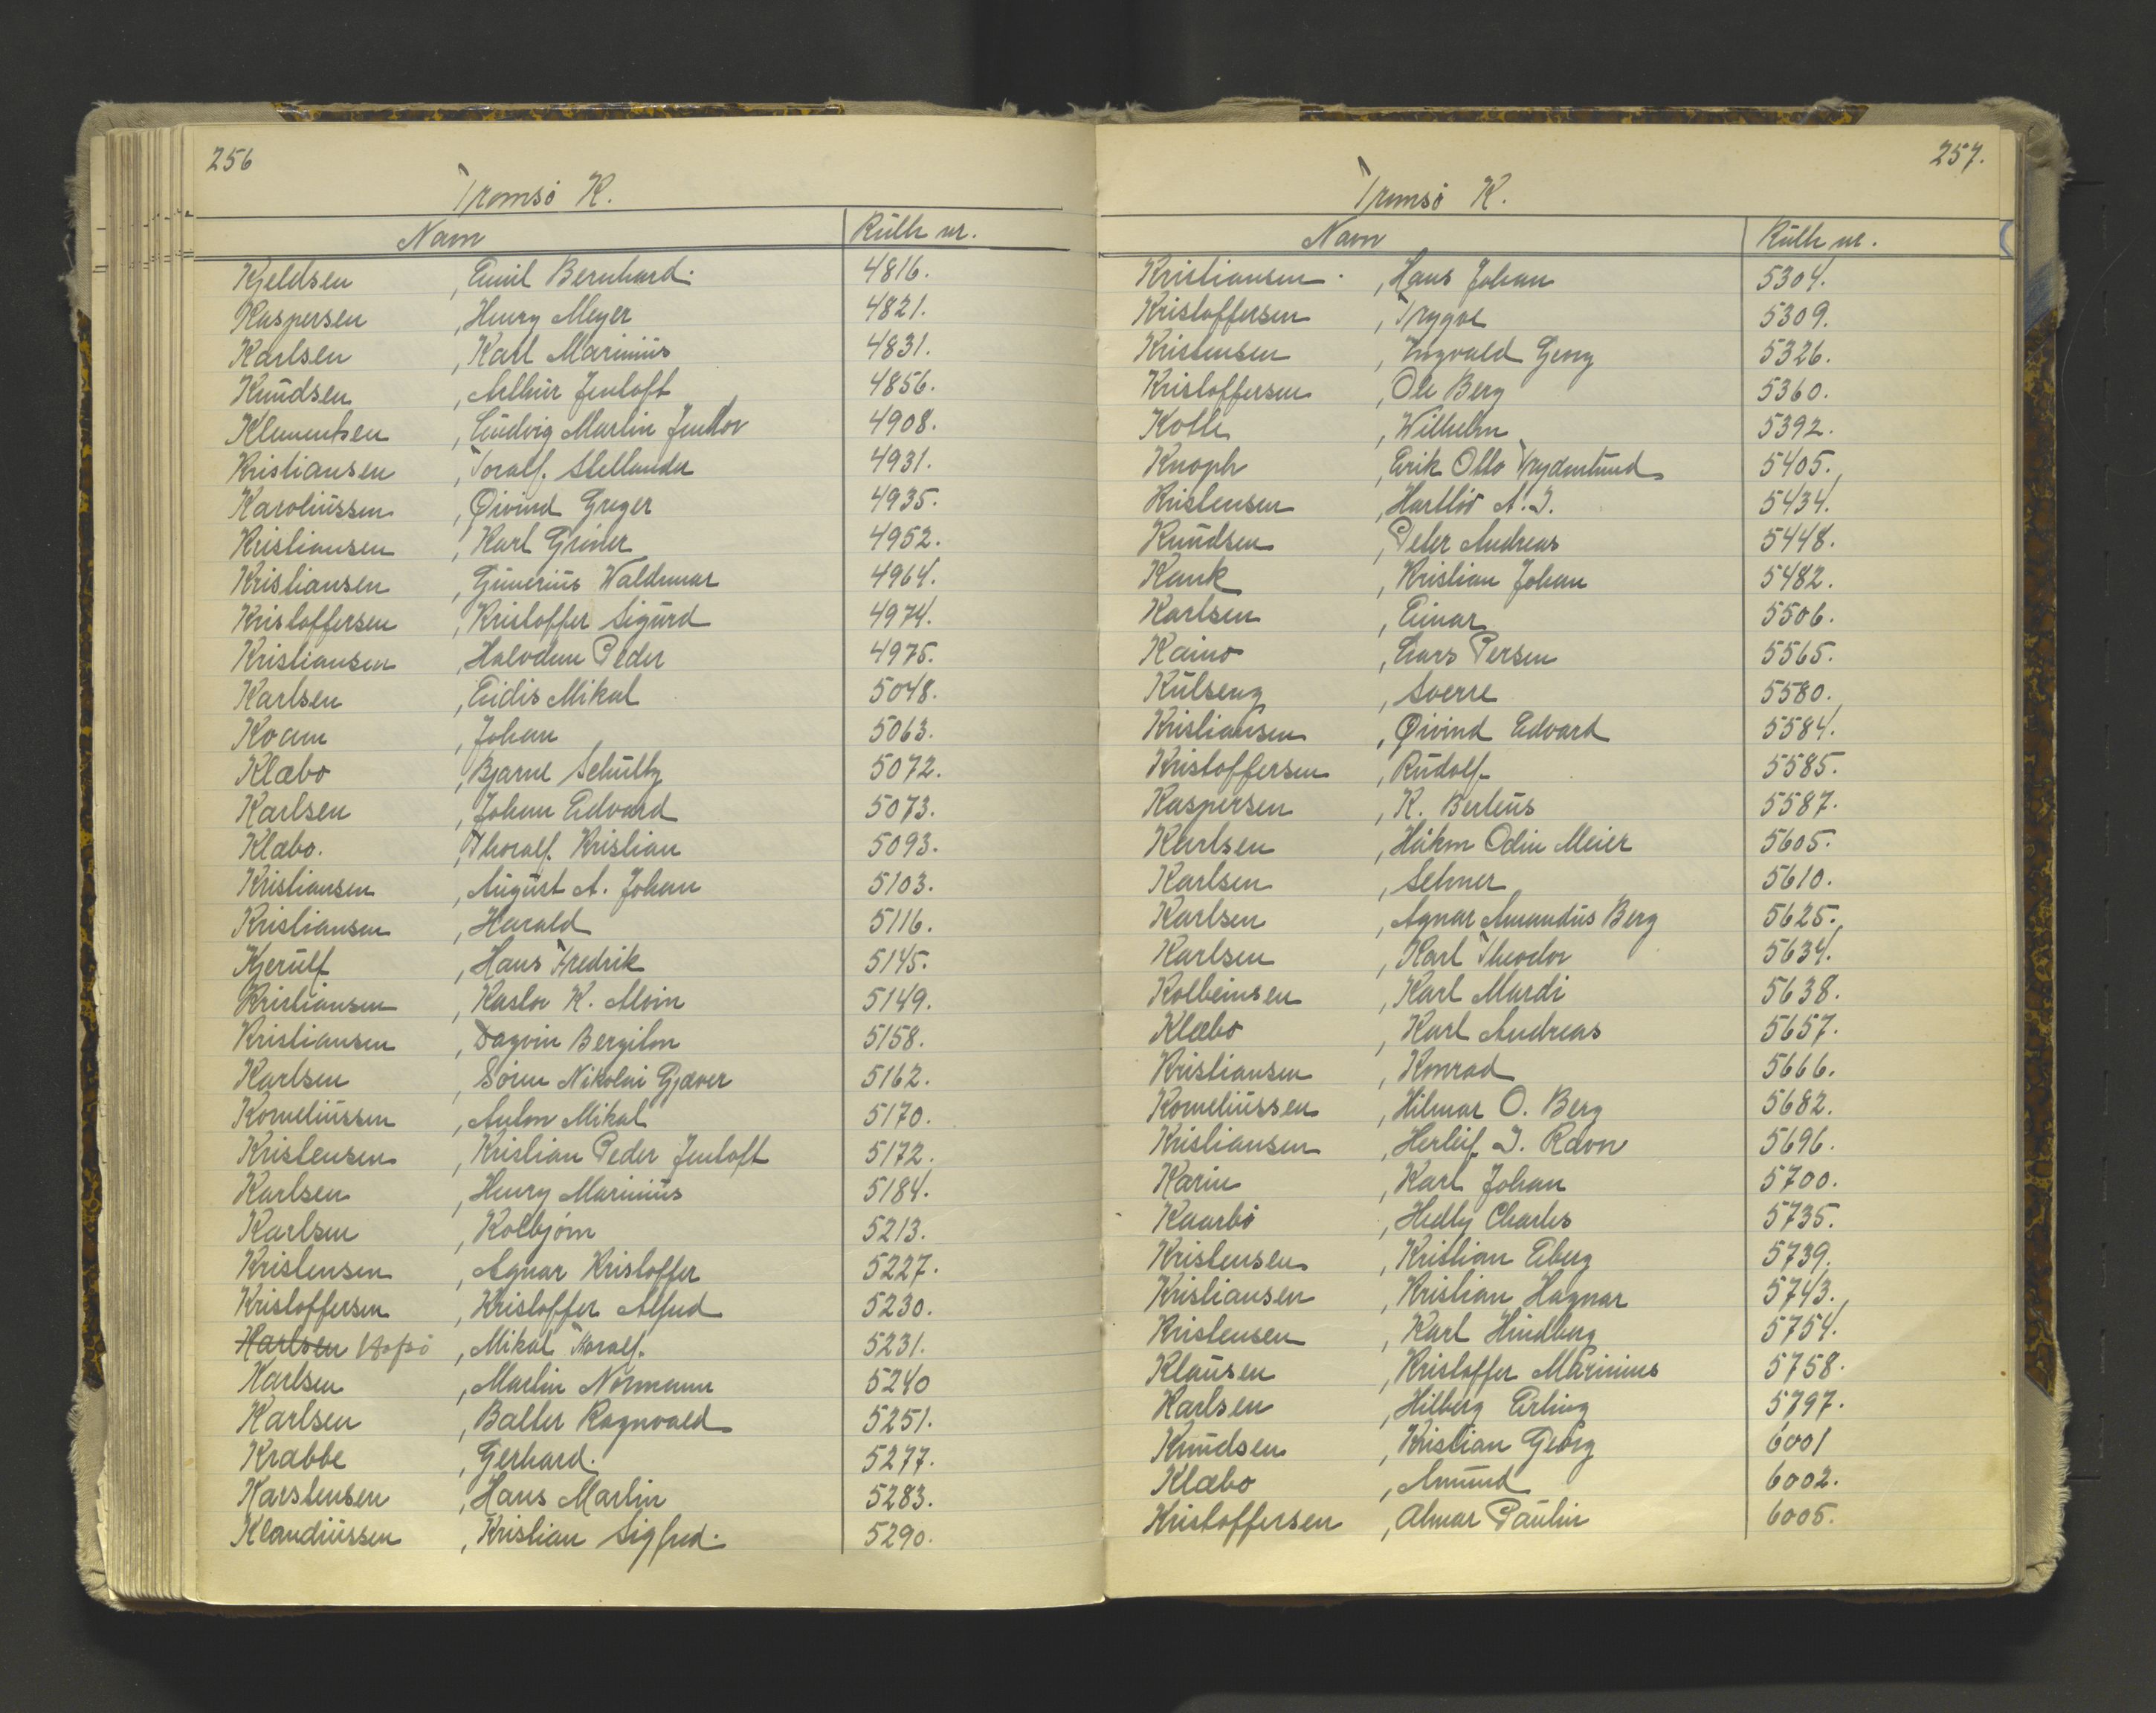 256
Tromsö K.
Navn Rulle nr.
Kjeldsen , Emil Bernhard. 4816.
Kaspersen , Henry Meyer 4821.
Karlsen , Karl Marinius 4831.
Knudsen , Arthur Jentoft 4856.
Klementsen , Ludvig Martin 4908.
Kristiansen , Toralf 4931.
Karoliussen , Øivind Greger 4935.
Kristiansen , Karl Griner 4952.
Kristiansen , Gunerius Waldemar 4964.
Kristoffersen , Kristoffer Sigurd 4974.
Kristiansen , Halvdan Peder 4975.
Karlsen , Eidis Mikal 5048.
Koam , Johan 5063.
Klæbo , Bjarne Schultz 5072.
Karlsen , Johan Edvard 5073.
Klæbo. , Thoralf Kristian 5093.
Kristiansen , August A. Johan 5103.
Kristiansen , Harald 5116.
Kjerulf , Hans Fredrik 5145.
Kristiansen , Kastor K. Alvin 5149.
Kristiansen , Dagvin Bergiton 5158.
Karlsen , Sören Nikolai Gjæver 5162.
Korneliussen , Anton Mikal 5170.
Kristensen , Kristian Peder Jentoft 5172.
Karlsen , Henry Marinius 5184.
Karlsen , Kolbjörn 5213.
Kristensen , Agnar Kristoffer 5227.
Kristoffersen , Kristoffer Alfred 5230.
Karlsen , Mikal Toralf. 5231.
Karlsen , Martin Normann 5240
Karlsen , Balter Ragnvald 5251.
Krabbe , Gerhard. 5277.
Karstensen , Hans Martin 5283.
Klaudiussen , Kristian Sigfred. 5290.
257.
Tromsö K.
Navn Rulle nr.
Kristiansen , Hans Johan 5304.
Kristoffersen , Trygve 5309.
Kristensen , Ingvald Georg 5326.
Kristoffersen , Ole Berg 5360.
Kolle , Wilhelm 5392.
Knoph , Erik Otto 5405.
Kristensen , Hartliv A. I. 5434.
Knudsen , Peter Andreas 5448.
Kauk , Kristian Johan 5482.
Karlsen , Einar 5506.
Kaino , Lars Persen 5565.
Kulseng , Sverre 5580.
Kristiansen , Øivind Edvard 5584.
Kristoffersen , Rudolf 5585.
Kaspersen , K. Berteus 5587.
Karlsen , Håkon Odin Meier 5605.
Karlsen , Selmer 5610.
Karlsen , Agnar Amandus Berg 5625.
Karlsen , Karl Theodor 5634.
Kolbeinsen , Karl Mardi 5638.
Klæbo , Karl Andreas 5657.
Kristiansen , Konrad 5666.
Korneliussen , Hilmar O. Berg 5682.
Kristiansen , Herleif I. Ravn 5696.
Karin , Karl Johan 5700.
Kaarbö , Hedly Charles 5735.
Kristensen , Kristian Eberg 5739.
Kristiansen , Kristian Hagnar 5743.
Kristensen , Karl Hindberg 5754.
Klausen , Kristoffer Marinius 5758.
Karlsen , Hilberg Erling 5797.
Knudsen , Kristian Georg 6001
Klæbo , Amund 6002.
Kristoffersen , Almar Paulin 6005.